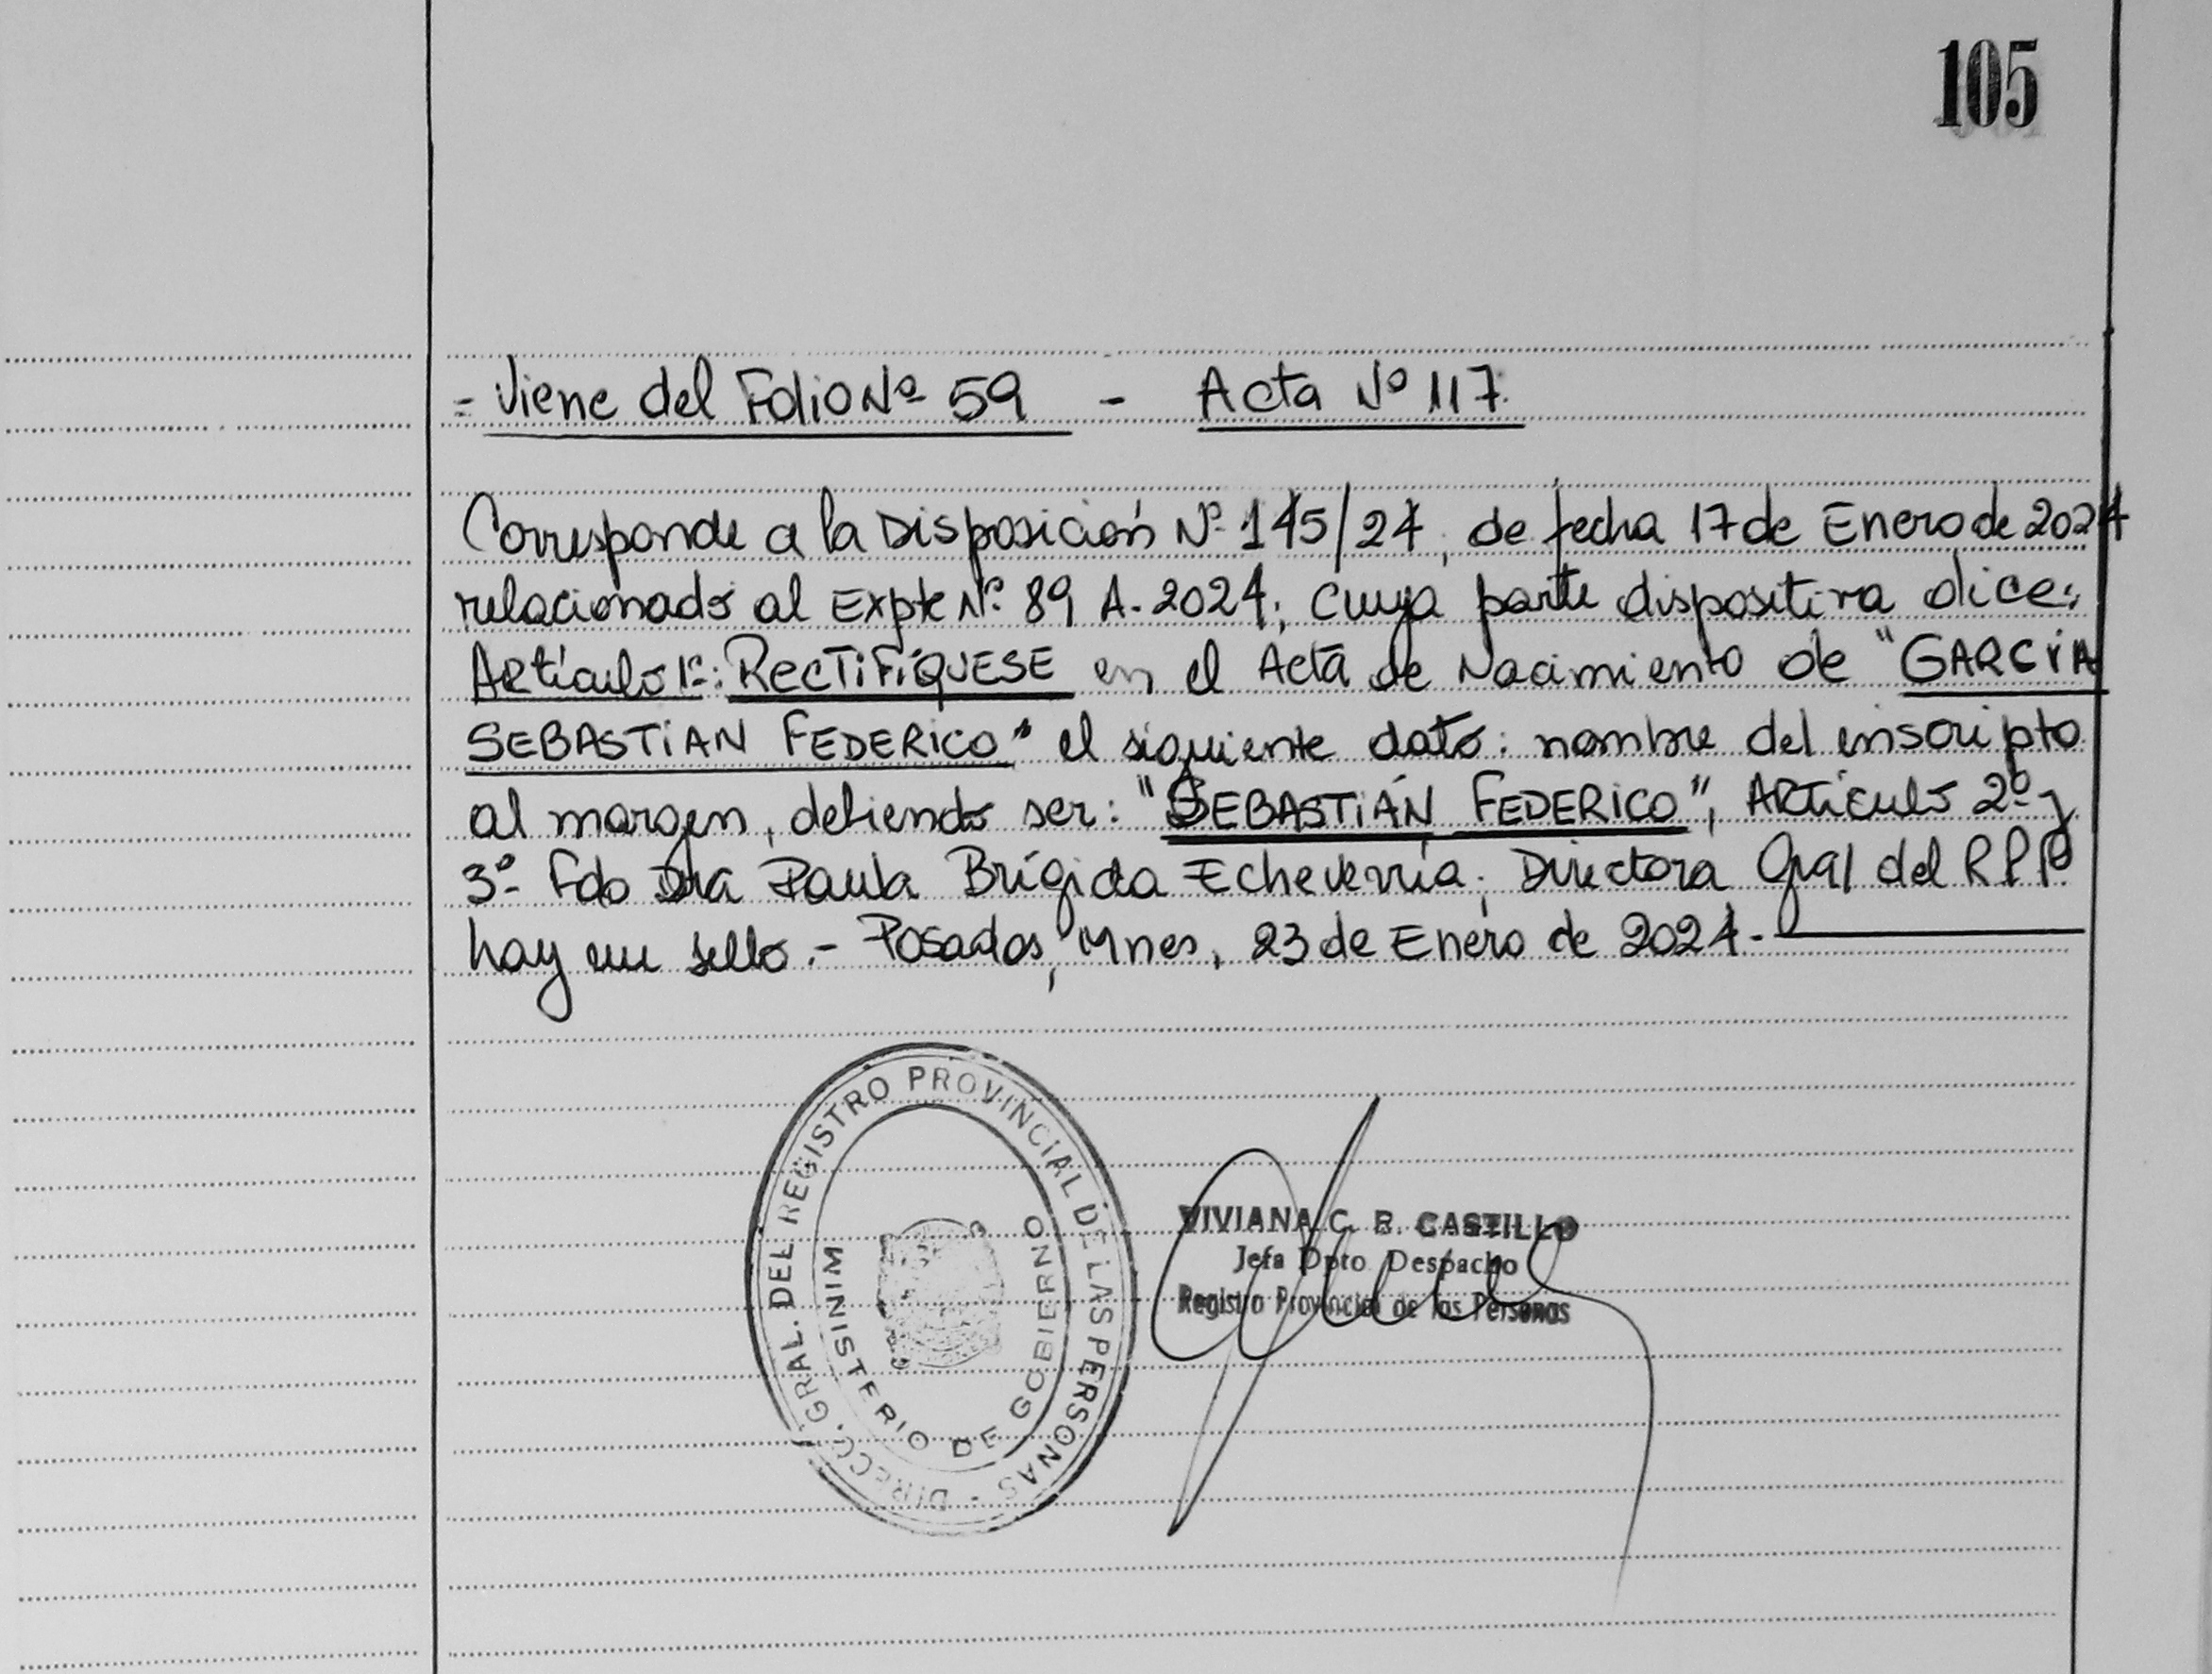 105
= Viene del Folio Nº 59 - Acta Nº 117.
Corresponde a la Disposición Nº 145/24, de fecha 17 de Enero de 2024
relacionado al Expte Nº 89 A-2024; cuya parte dispositiva dice:
Artículo 1º: RECTIFÍQUESE en el Acta de Nacimiento de "GARCÍA
SEBASTIAN FEDERICO" el siguiente dato: nombre del inscripto
al margen, debiendo ser: "SEBASTIÁN FEDERICO", Artículo 2º y
3º- Fdo Dra Paula Brígida Echeverría; Directora Gral del RPP
hay un sello.- Posadas, Mnes, 23 de Enero de 2024.-
DIRECC. GRAL. DEL REGISTRO PROVINCIAL DE LAS PERSONAS -
MINISTERIO DE GOBIERNO
VIVIANA C. B. CASTILLO
Jefa Dpto Despacho
Registro Provincial de las Personas